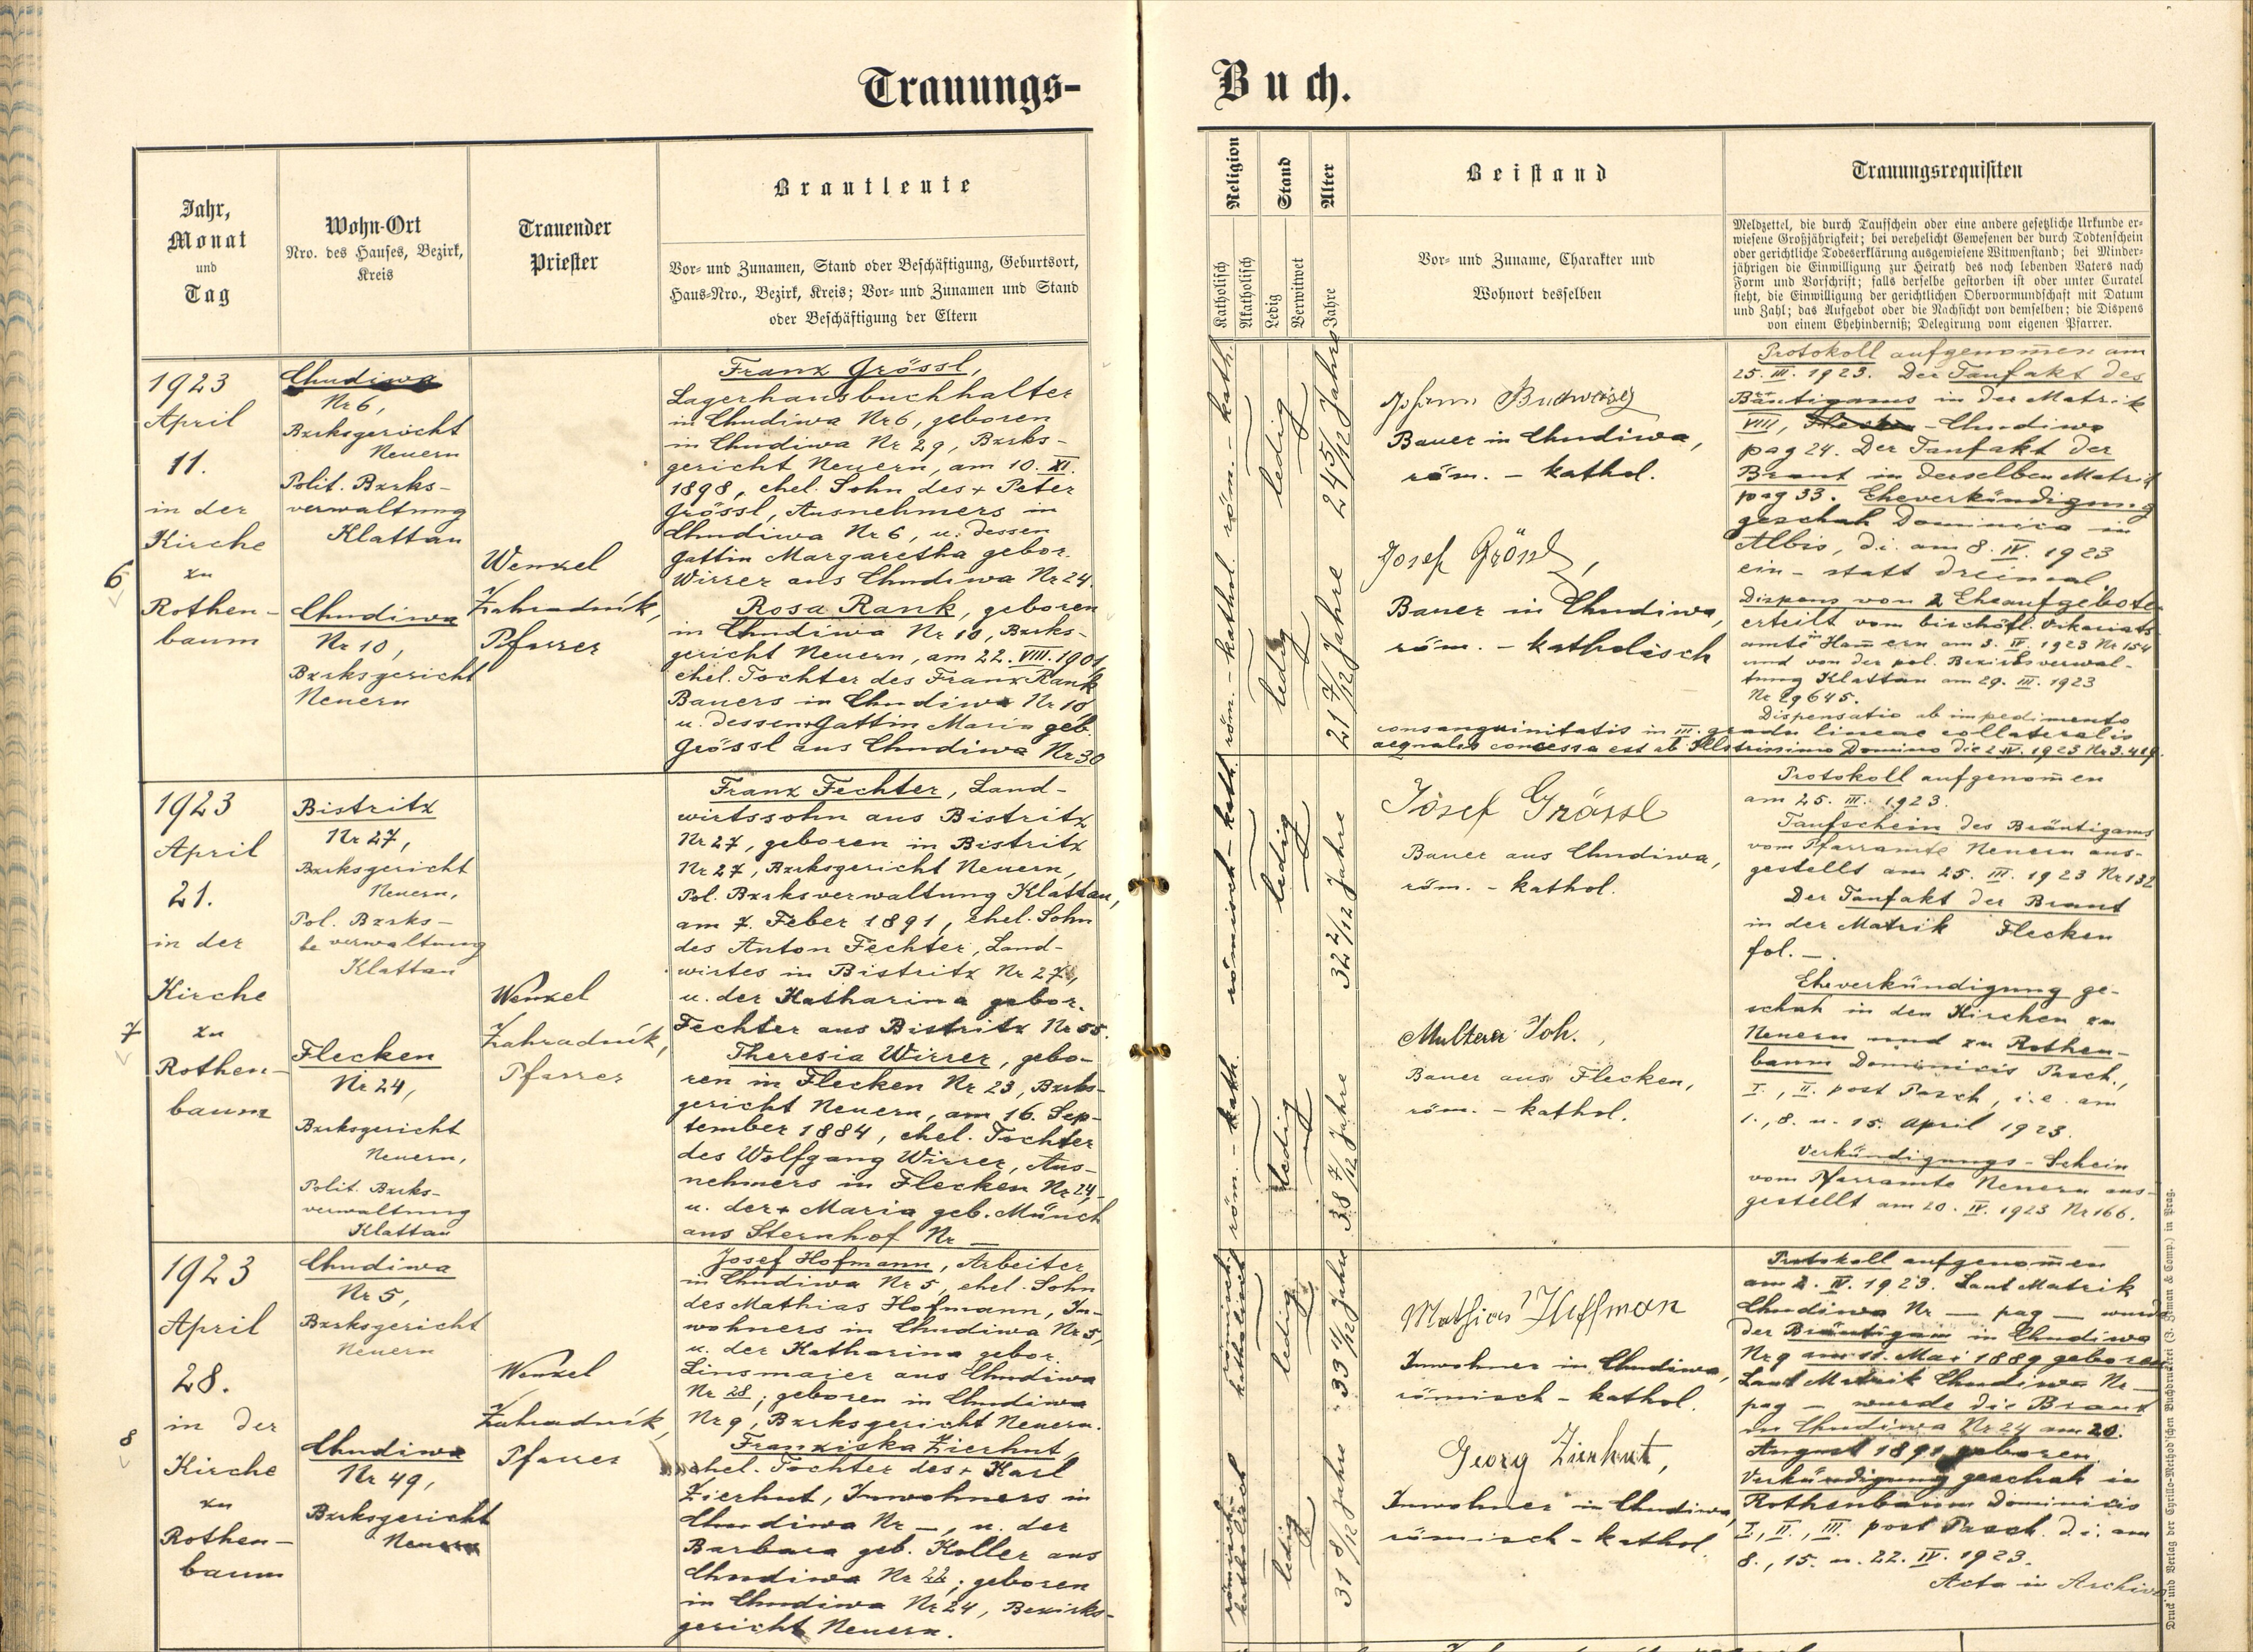 Trauungs-
Buch.
Jahr,
Monat
und
Tag
Wohn-Ort
Nro. des Hauses, Bezirk,
Kreis
Trauender
Priester
Brautleute
Vor- und Zunamen, Stand oder Beschäftigung, Geburtsort,
Haus-Nro., Bezirk, Kreis; Vor- und Zunamen und Stand
oder Beschäftigung der Eltern
Religion
Katholisch
Akatholisch
Stand
Ledig
Verwitwet
Alter
Jahre
Beistand
Vor- und Zuname, Charakter und
Wohnort desselben
Trauungsrequisiten
Meldzettel, die durch Taufschein oder eine andere gesetzliche Urkunde er-
wiesene Großjährigkeit; bei verehelicht Gewesenen der durch Todtenschein
oder gerichtliche Todeserklärung ausgewiesene Witwenstand; bei Minder-
jährigen die Einwilligung zur Heirath des noch lebenden Vaters nach
Form und Vorschrift; falls derselbe gestorben ist oder unter Curatel
steht, die Einwilligung der gerichtlichen Obervormundschaft mit Datum
und Zahl; das Aufgebot oder die Nachsicht von demselben; die Dispens
von einem Ehehinderniß; Delegirung vom eigenen Pfarrer.
6
1923
April
11.
in der
Kirche
zu
Rothen-
baum
Chudiwa
Nr 6,
Bzrksgericht
Neuern
Polit. Bzrks-
verwaltung
Klattau
Chudiwa
Nr 10,
Bzrksgericht
Neuern
Wenzel
Zahradník,
Pfarrer
Franz Grössl,
Lagerhausbuchhalter
in Chudiwa Nr 6, geboren
in Chudiwa Nr 29, Bzrks-
gericht Neuern, am 10. XI.
1898, ehel. Sohn des + Peter
Grössl, Ausnehmers in
Chudiwa Nr 6, u. dessen
Gattin Margaretha gebor.
Wirrer aus Chudiwa Nr 24.
Rosa Rank, geboren
in Chudiwa Nr 10, Bzrks-
gericht Neuern, am 22. VIII. 1901,
ehel. Tochter des Franz Rank
Bauers in Chudiwa Nr 10
u. dessen + Gattin Maria geb.
Grössl aus Chudiwa Nr 30
röm. - kath.
ledig
24 5/12 Jahre
röm. - kathol.
ledig
21 7/12 Jahre
Johann Budweisg
Bauer in Chudiwa,
röm. - kathol.
Josef Grössl,
Bauer in Chudiwa,
röm. - katholisch
Protokoll aufgenom̄en am
25. III. 1923. Der Taufakt des
Bräutigams in der Matrik
VIII, - Chudiwa
pag 24. Der Taufakt der
Braut in derselben Matrik
pag 33. Eheverkündigung
geschah Dominica in
Albis, d.i. am 8. IV. 1923
ein - statt dreimal
Dispens von 2 Eheaufgebote
erteilt vom bischöfl. Vikariats-
amte in Ham̄ern am 3. IV. 1923 Nr 154
und von der pol. Bezirksverwal-
tung Klattau am 29. III. 1923
Nr 29645.
Dispensatio ab impedimento
consanguinitatis in III. gradu lineae collateralis
aequalis concessa est ab Illustrissimo Domino die 2. IV. 1923 Nr 3.419.
7
1923
April
21.
in der
Kirche
zu
Rothen-
baum
Bistritz
Nr 27,
Bzrksgericht
Neuern,
Pol. Bzrks-
verwaltung
Klattau
Flecken
Nr 24,
Bzrksgericht
Neuern,
Polit. Bzrks-
verwaltung
Klattau
Wenzel
Zahradník,
Pfarrer
Franz Fechter, Land-
wirtssohn aus Bistritz
Nr 27, geboren in Bistritz
Nr 27, Bzrksgericht Neuern,
Pol. Bzrksverwaltung Klattau,
am 7. Feber 1891, ehel. Sohn
des Anton Fechter, Land-
wirtes in Bistritz Nr 27,
u. der Katharina gebor.
Fechter aus Bistritz Nr 55.
Theresia Wirrer, gebo-
ren in Flecken Nr 23, Bzrks-
gericht Neuern, am 16. Sep-
tember 1884, ehel. Tochter
des Wolfgang Wirrer, Aus-
nehmers in Flecken Nr 24,
u. der + Maria geb. Münch
aus Sternhof Nr —
römisch - kath.
ledig
32 2/12 Jahre
röm. - kath.
ledig
38 7/12 Jahre
Josef Grössl
Bauer aus Chudiwa,
röm. - kathol.
Multerer Joh.,
Bauer aus Flecken,
röm. - kathol.
Protokoll aufgenom̄en
am 25. III. 1923.
Taufschein des Bräutigams
vom Pfarramte Neuern aus-
gestellt am 25. III. 1923 Nr 132
Der Taufakt der Braut
in der Matrik Flecken
fol. —.
Eheverkündigung ge-
schah in den Kirchen zu
Neuern und zu Rothen-
baum Dominicis Pasch.,
I., II. post Pasch, i.e. am
1., 8. u. 15. April 1923.
Verkündigungs-Schein
vom Pfarramte Neuern aus-
gestellt am 20. IV. 1923 Nr 166.
8
1923
April
28.
in der
Kirche
zu
Rothen-
baum
Chudiwa
Nr 5,
Bzrksgericht
Neuern
Chudiwa
Nr 49,
Bzrksgericht
Neuern
Wenzel
Zahradník,
Pfarrer
Josef Hofmann, Arbeiter
in Chudiwa Nr 5, ehel. Sohn
des Mathias Hofmann, In-
wohners in Chudiwa Nr 5,
u. der Katharina gebor.
Linsmaier aus Chudiwa
Nr 28; geboren in Chudiwa
Nr 9, Bzrksgericht Neuern.
Franziska Zierhut,
ehel. Tochter des + Karl
Zierhut, Inwohners in
Chudiwa Nr —, u. der
Barbara geb. Koller aus
Chudiwa Nr 22; geboren
in Chudiwa Nr 24, Bezirks-
gericht Neuern.
römisch-
katholisch
ledig
33 11/12 Jahre
römisch-
katholisch
ledig
31 8/12 Jahre
Mathias Hoffman
Inwohner in Chudiwa,
römisch - kathol.
Georg Zierhut,
Inwohner in Chudiwa,
römisch - kathol.
Protokoll aufgenom̄en
am 2. IV. 1923. Laut Matrik
Chudiwa Nr — pag — wurde
der Bräutigam in Chudiwa
Nr 9 am 11. Mai 1889 geboren
Laut Matrik Chudiwa Nr —
pag — wurde die Braut
in Chudiwa Nr 24 am 20.
August 1891 geboren.
Verkündigung geschah in
Rothenbaum Dominicis
I., II., III. post Pasch. d.i. am
8., 15. u. 22. IV. 1923.
Acta in Archivo
Druck und Verlag der Cyrillo-Method'schen Buchdruckerei (J. Zeman & Comp.) in Prag.